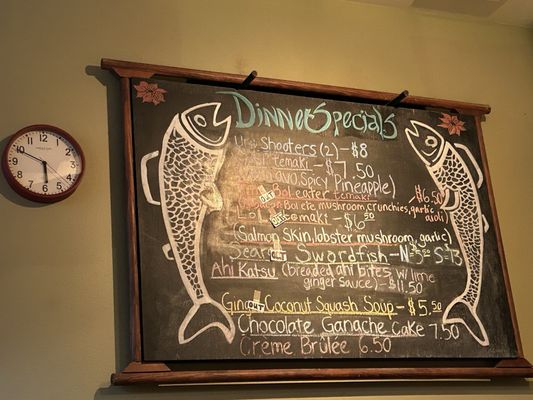 Dinner Specials
Uni Shooters (2) - $8
temaki - $7.50
Spicy Pineapple)
eater temaki - $6.50
mushroom, crunchies, garlic aioli)
LoL OUT temaki - $6.50
(Salmon Skin, lobster mushroom, garlic)
Sear OUT Swordfish -
Ahi Katsu (breaded ahi bites w/ lime
ginger sauce) - $11.50
Ging OUT Coconut Squash Soup - $5.50
Chocolate Ganache Cake 7.50
Crème Brûlée 6.50
12
1
2
3
4
5
6
7
8
9
10
11